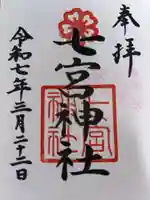 奉拝
七宮神社
令和七年三月二十二日